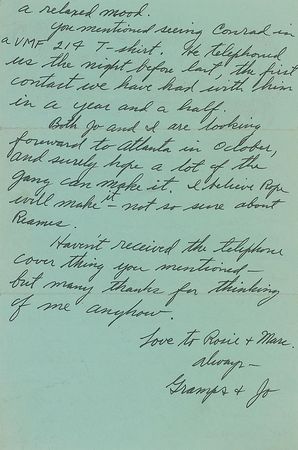 a relaxed mood.
You mentioned seeing Conrad in
a VMF 214 T-shirt. He telephoned
us the night before last, the first
contact we have had with him
in a year and a half.
Both Jo and I are looking
forward to Atlanta in October,
and surely hope a lot of the
gang can make it. I believe Pope
will make it - not so sure about
Reames.
Haven't received the telephone
cover thing you mentioned -
but many thanks for thinking
of me anyhow.
Love to Rosie & Marc
Always -
Gramps & Jo